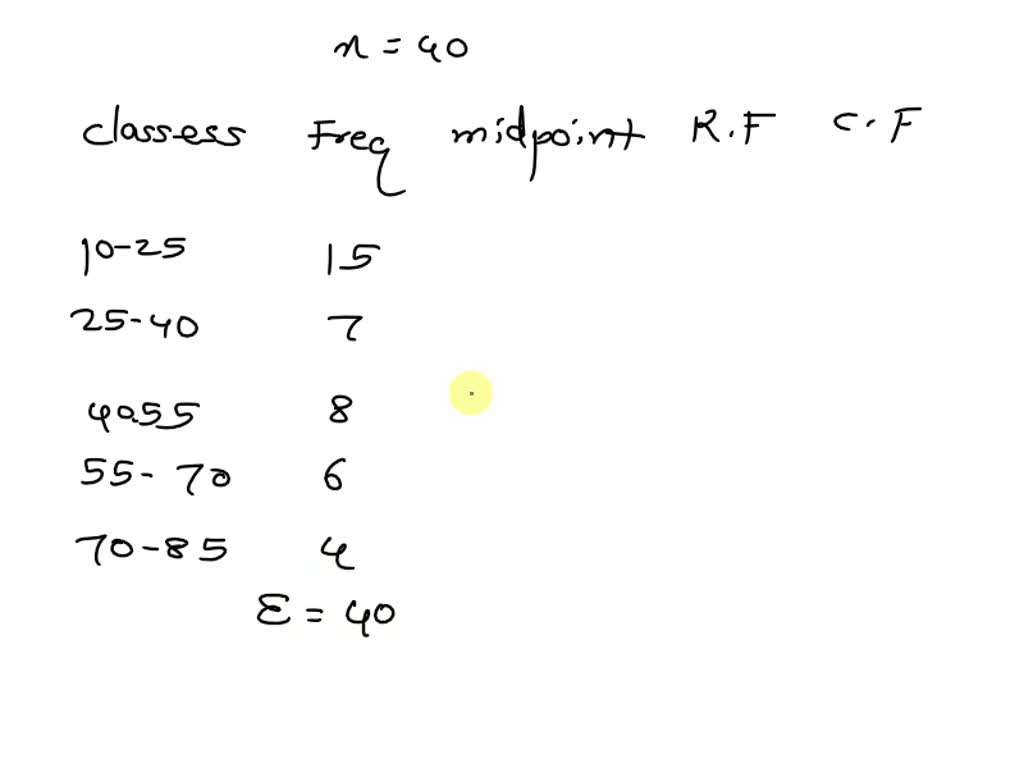 n = 40
classess Freq midpoint R.F C.F
10-25 15
25-40 7
40-55 8
55- 70 6
70-85 4
Σ = 40